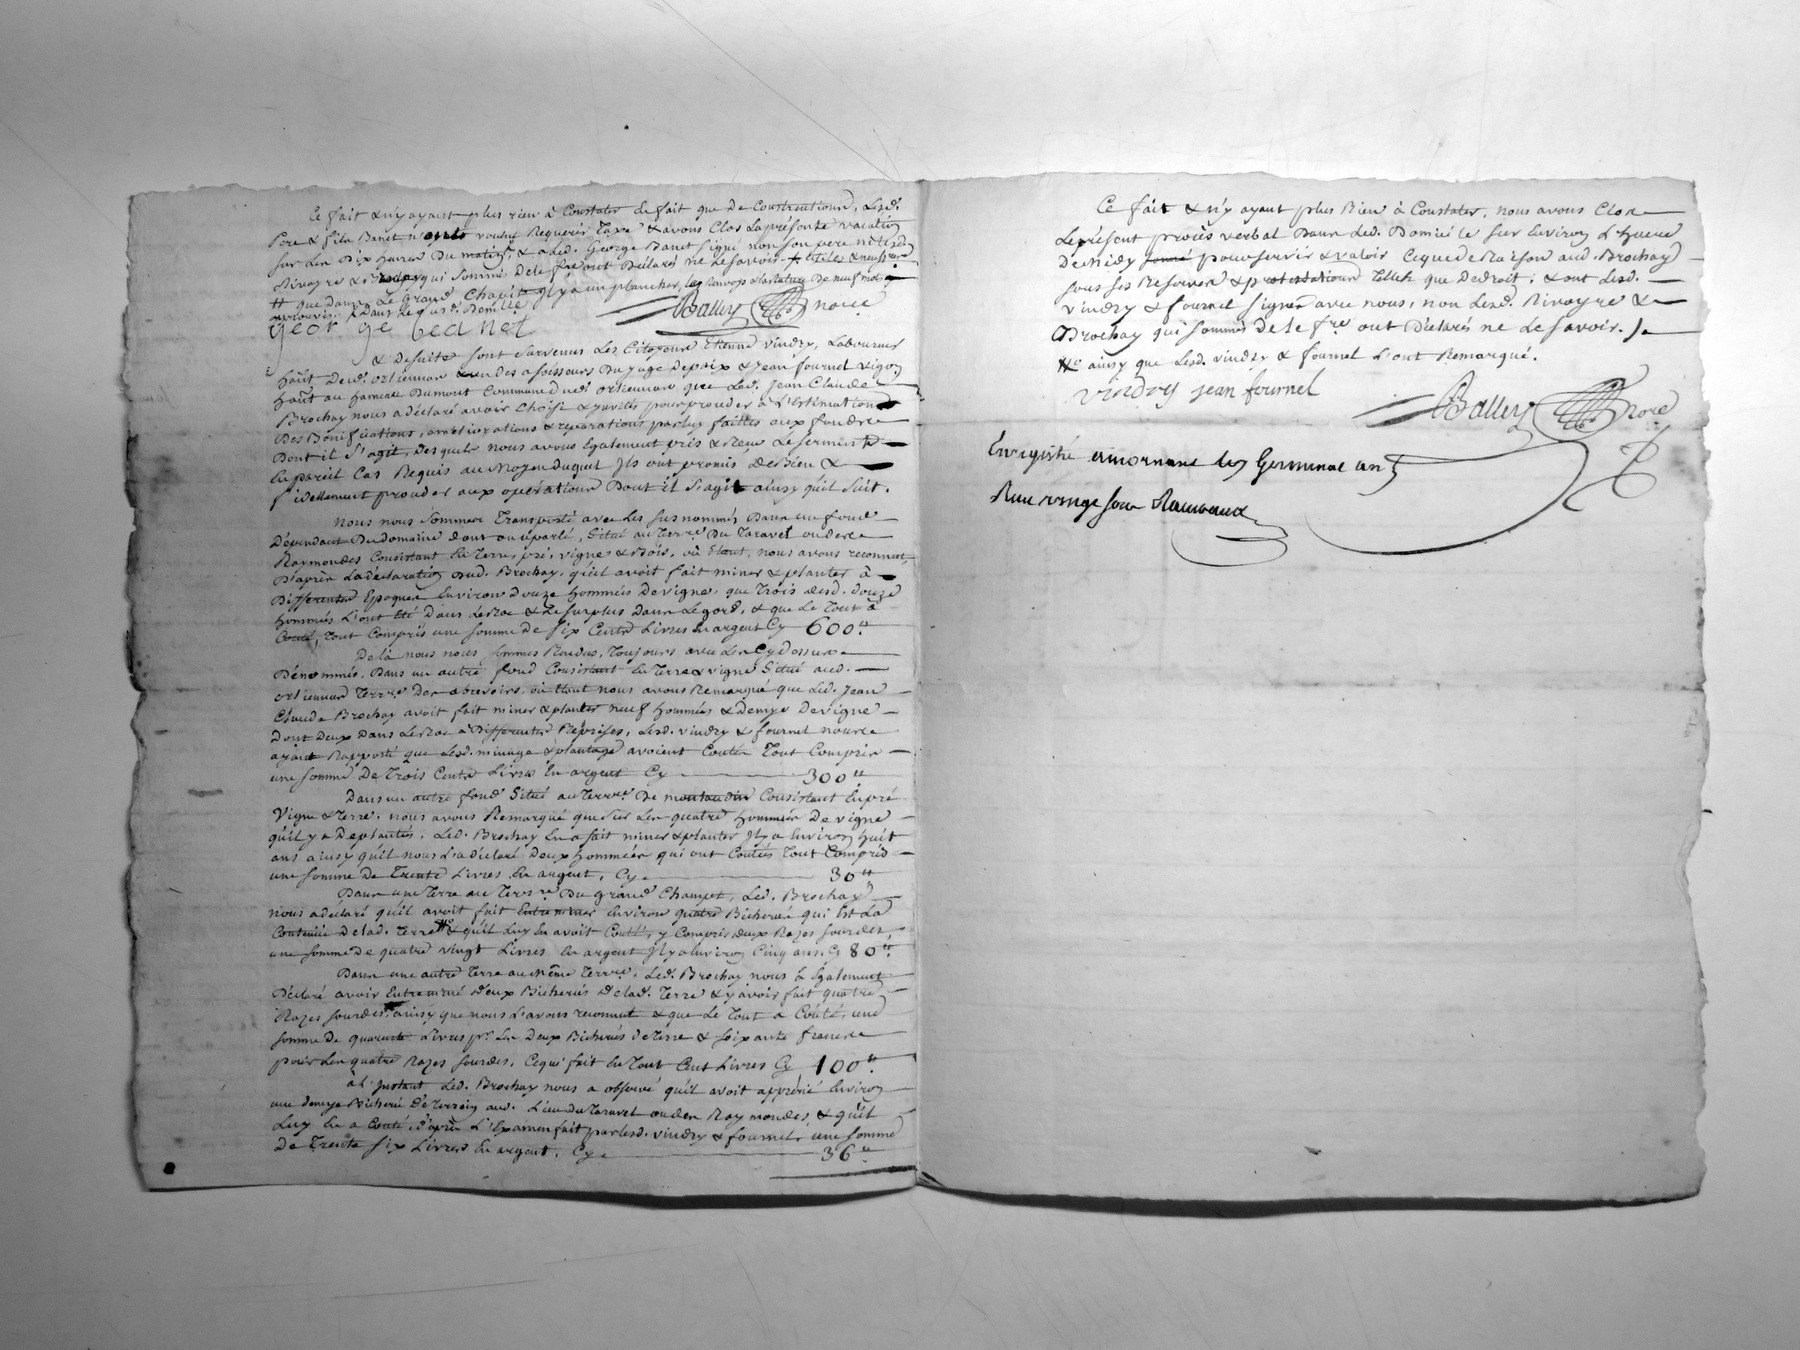 Ce fait & n'y ayant plus rien à Constater de fait que de Constructions, Lesd.
Pere & fils Banet n'ayants voulu Requerir Taxe & avons Clos La présente vacation
sur Les Dix heures Du matin, & a Led. George Banet signé non son pere ni Lesd.
Rivoyre & Brochay qui sommés de le fre ont Déclarés ne Le savoir
que dans Le Grand Chapit Il y a un plancher,
george beanet
Ballery nore
& De suite sont survenus Les Citoyens Etienne vindry, Laboureur
haut Dud. orlienas & un des assesseurs Du juge de paix & Jean fournel vigon
hant au hameau Dumont Commune dud. orlienas que Led. Jean Claude
Brochay nous a déclaré avoir choisi & invités pour proceder à L'Estimation
Des Bonifications, ameliorations & reparations par luy faittes aux fonds
Dont il s'agit, desquels nous avons Egalement pris & Recu Le serment
En pareil Cas Requis au moyen duquel Ils ont promis de Bien &
fidellement proceder aux operations Dont il s'agit ainsy qu'il suit.
Nous nous sommes Transporté avec Les susnommés Dans un fond
Dépendant Du domaine dont on a parlé, situé au Terre. Du Taravel ou des
Raymondes Consistant En Terre, pré, vigne & Bois, où Etant, nous avons reconnut
D'après La déclaration Dud. Brochay, qu'il avoit fait miner & planter à
Differentes Epoques Environ Douze hommées de vigne, que Trois desd. douze
hommées L'ont Eté Dans Le Roc & Le surplus Dans Le gord, & que Le Tout à
Couté, Tout Compris une somme de six Cents Livres En argent Cy 600tt.
De là nous nous sommes Rendus, Toujours avec Les Cy Dessus
Dénommés, Dans un autre fond Consistant En Terre & vigne situé aud.
orlienas Terre. Des abrevoirs, où Etant nous avons Remarqué que Led. Jean
Claude Brochay avoit fait miner & planter neuf hommées & Demye De vigne
Dont Deux Dans Le Roc à Differentes Réprises, Lesd. vindry & fournel nous
ayant Rapporté que Lesd. minage & plantage avoient Coutés Tout Compris
une somme De Trois Cents Livres En argent Cy 300tt
Dans un autre fond situé au Terre. De montaudin Consistant En pré
Vigne & Terre, nous avons Remarqué que sur Les quatre hommées De vigne
qu'il y a De plantés, Led. Brochay En a fait miner & planter Il y a Environ huit
ans ainsy qu'il nous L'a déclaré Deux hommées qui ont Coutés Tout Compris
une somme De Trente Livres En argent, Cy 30tt
Dans une Terre au Terre. Du grand Champt, Led. Brochay
nous a déclaré qu'il avoit fait Entreminer Environ quatre Bicherées qui Est La
Contenue De lad. Terre & qu'il Luy En avoit Couté, y Compris deux Razes sourdes,
une somme De quatre vingt Livres En argent Il y a Environ Cinq ans Cy 80tt.
Dans une autre Terre au même Terre. Led. Brochay nous à Egalement
Déclaré avoir Entreminé Deux Bicherées De lad. Terre & y avoir fait quatre
Razes sourdes, ainsy que nous L'avons reconnut & que Le Tout a Coûté, une
somme De quarante Livres pr. Les Deux Bicherées de Terre & soixante francs
pour Les quatre Razes sourdes, Ce qui fait En Tout Cent Livres Cy 100tt.
à L'Instant Led. Brochay nous a observé qu'il avoit apprérié Environ
une demye Bicherée De Terrein aud. Lieu du Taravel ou des Raymondes, & qu'il
Luy En a Couté d'après L'Examen fait par Lesd. vindry & fournel, une somme
De Trente six Livres En argent, Cy 36tt
Ce fait & n'y ayant plus Rien à Constater, nous avons Clos
Le présent procès verbal Dans Led. Domicile sur Environ L'heure
De midy pour servir & valoir Ce que De Raison aud. Brochay
sous ses Reserves & protestations Telles que De droit; & ont Lesd.
vindry & fournel signés avec nous, non Lesd. Rivoyre &
Brochay qui sommés De le fre ont Déclarés ne Le savoir.
ainsy que Lesd. vindry & fournel L'ont Remarqué.
vindry jean fournel
Ballery nore
Enregistré a mornant le Germinal an
Reçu vingt sous